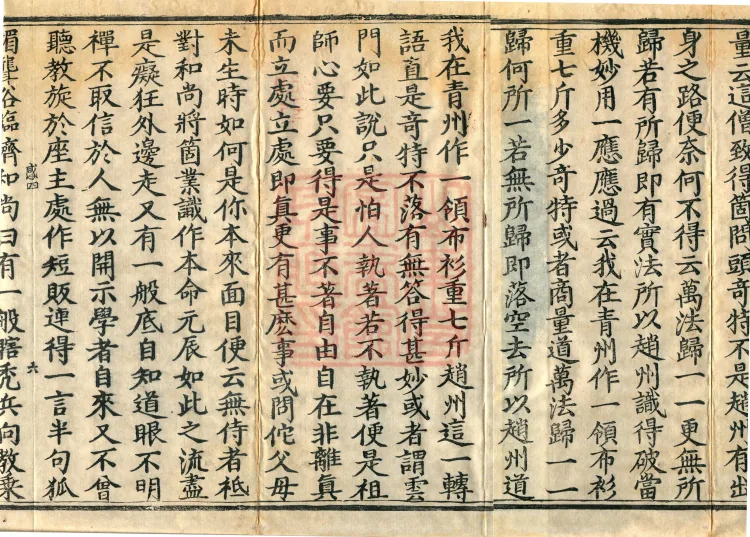 量云這僧致得箇問頭竒特不是趙州有出
身之路便奈何不得云萬法歸一一更無所
歸若有所歸即有實法所以趙州識得破當
機妙用一應應過云我在青州作一領布衫
重七斤多少竒特或者商量道萬法歸一一
歸何所一若無所歸即落空去所以趙州道
我在青州作一領布衫重七斤趙州這一轉
語直是竒特不落有無答得甚妙或者謂雲
門如此說只是怕人執著若不執著便是祖
師心要只要得是事不著自由自在非離真
而立處立處即真更有甚麽事或問佗父母
未生時如何是你本來面目便云無侍者祗
對和尚將箇業識作本命元辰如此之流盡
是癡狂外邊走又有一般底自知道眼不明
禪不取信於人無以開示學者自來又不曾
聽教旋於座主處作短販逴得一言半句狐
媚聾俗臨濟和尚曰有一般瞎禿兵向教乗
六